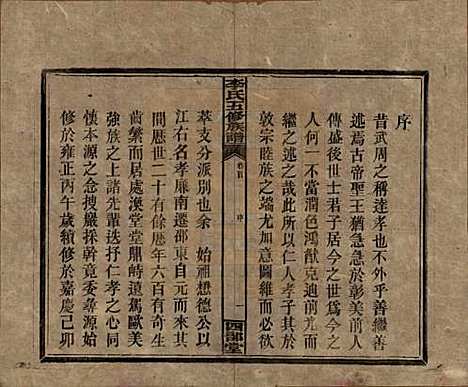 序
昔武周之稱達孝也不外乎善繼善
述焉古帝聖王猶急急於彰美前
傳盛後世士君子居今之世爲今之
人何一不當潤色鴻猷克廸前光而
繼之述之哉此以仁人孝子其於
敦宗睦族之端尤加意圖維而
李氏五修族譜
卷首
序
一
四部堂
萃支分派別也余 始祖想德公以
江右名孝廉南遷邵東自元而來其
間歷世二十有餘歷年六百有奇生
齒繁而居處渙堂堂鼎峙遠駕歐美
強族之上諸先輩送抒仁孝之心同
懷本源之念搜嚴採幹竟委尋源始
修於雍正丙午歲續修於嘉慶己卯